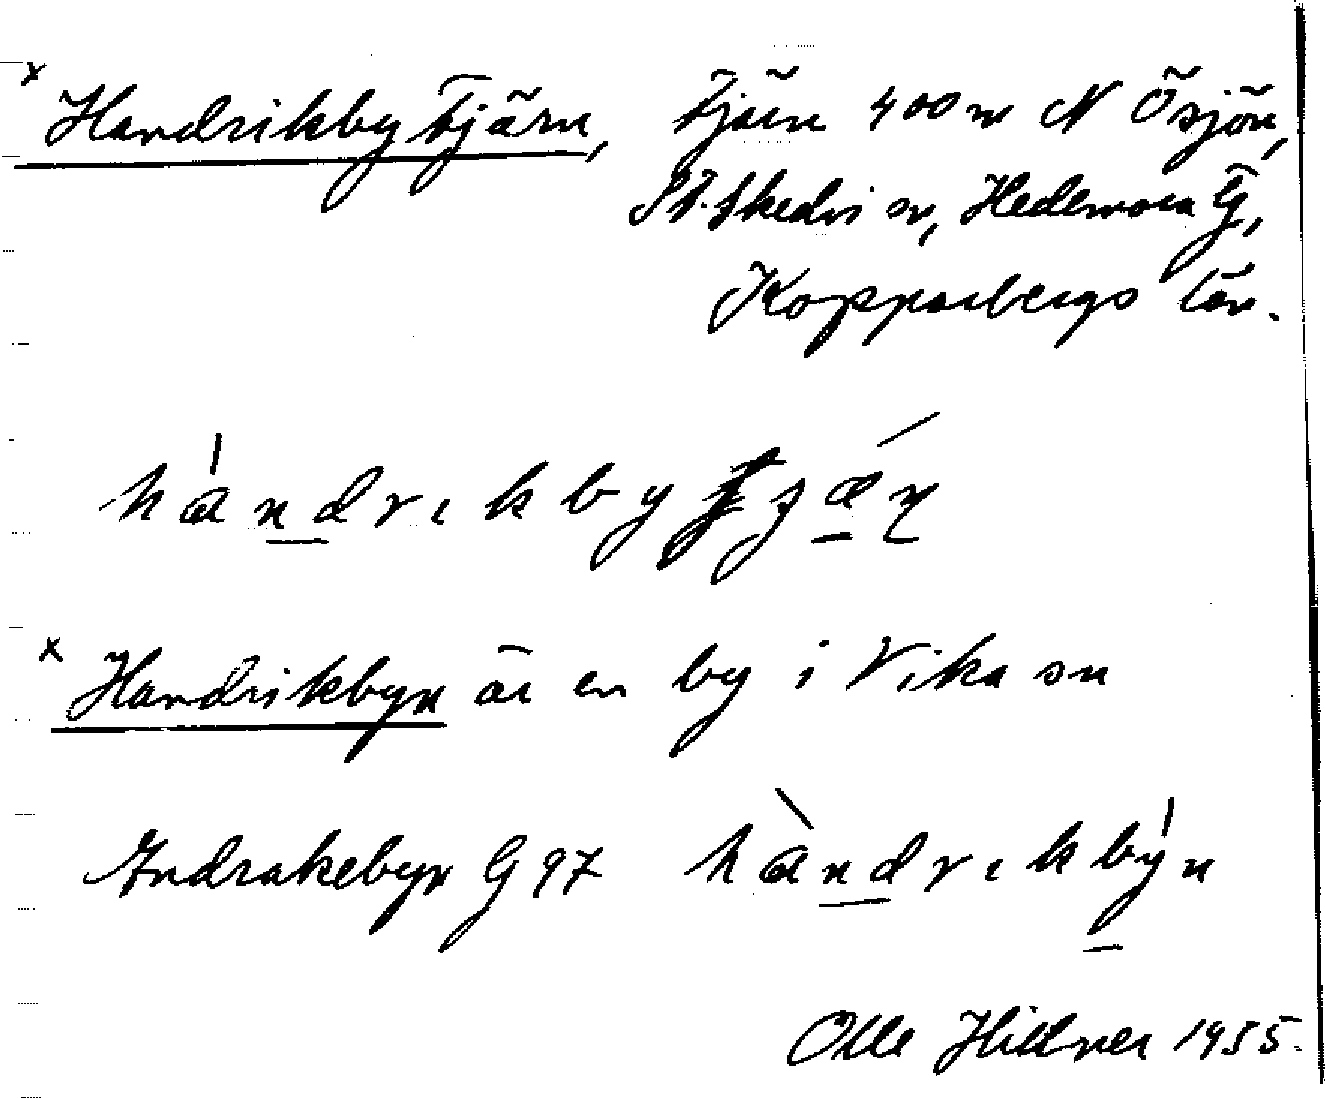 x Handrikby tjärn, tjärn 400 m N Ösjön,
St. Skedvi sn, Hedemora G,
Kopparbergs län.
hàndrikby
x Handrikbyn är en by i Vika sn
Andrakebyn G 97 hàndrikbýn
Olle Hillner 1955